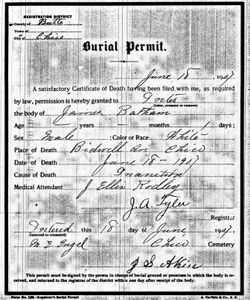 REGISTRATION DISTRICT
County of Butte
Town of
City of Chico
Burial Permit.
June 18, 1907
A satisfactory Certificate of Death having been filed with me, as required
by law, permission is hereby granted to Inter
the body of James Batham
Age years months 1 days
Sex Male Color or Race White
Place of Death Bidwell Av Chico
Date of Death June 18 - 1907
Cause of Death Inanition
Medical Attendant J Ellis Rodley
J. A. Tyler
Interred this 18 day of June 1907.
Chico Cemetery
This permit must be signed by the person in charge of burial ground or premises in which the body is
interred, and returned to the registrar of this district within one day after receipt of the body.